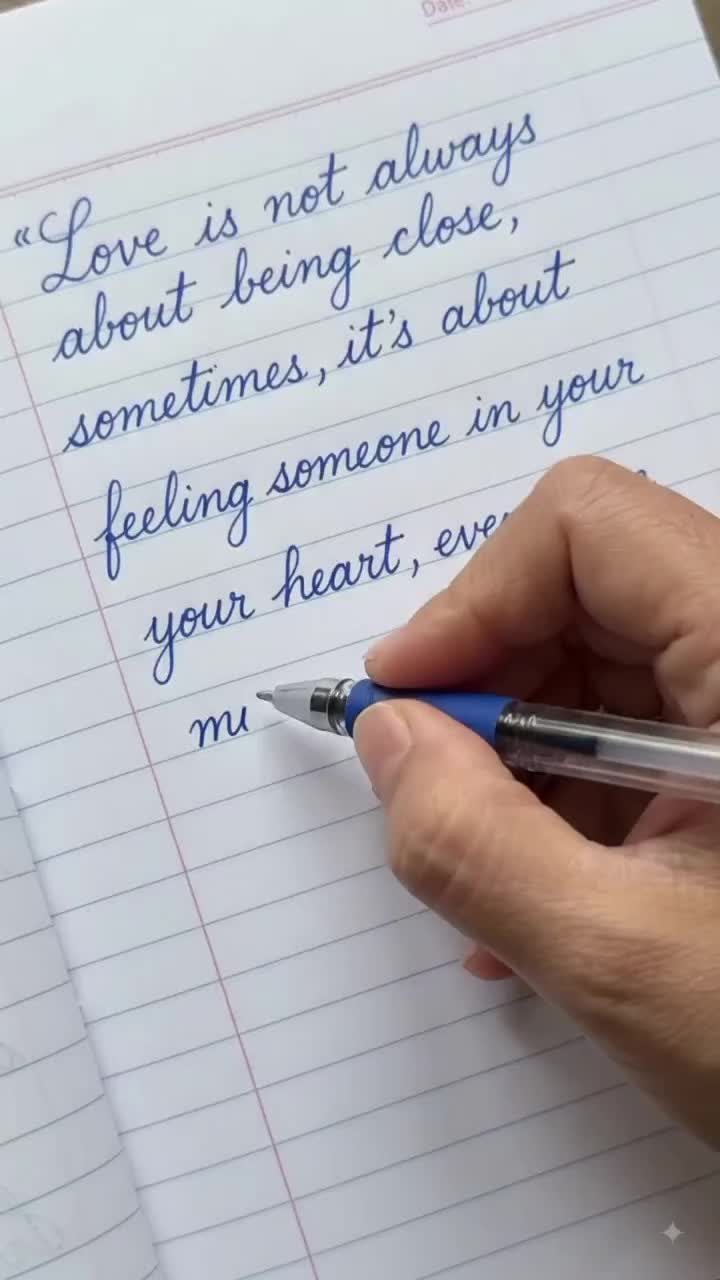 Date:
“Love is not always
about being close,
sometimes, it's about
feeling someone in your
your heart, eve
mu